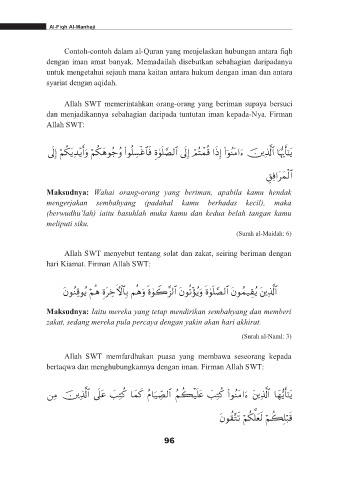 Al-Fiqh Al-Manhaji
Contoh-contoh dalam al-Quran yang menjelaskan hubungan antara fiqh
dengan iman amat banyak. Memadailah disebutkan sebahagian daripadanya
untuk mengetahui sejauh mana kaitan antara hukum dengan iman dan antara
syariat dengan aqidah.
Allah SWT memerintahkan orang-orang yang beriman supaya bersuci
dan menjadikannya sebahagian daripada tuntutan iman kepada-Nya. Firman
Allah SWT:
يَٰٓأَيُّهَا ٱلَّذِينَ ءَامَنُوٓا۟ إِذَا قُمْتُمْ إِلَى ٱلصَّلَوٰةِ فَٱغْسِلُوا۟ وُجُوهَكُمْ وَأَيْدِيَكُمْ إِلَى
ٱلْمَرَافِقِ
Maksudnya: Wahai orang-orang yang beriman, apabila kamu hendak
mengerjakan sembahyang (padahal kamu berhadas kecil), maka
(berwudhu'lah) iaitu basuhlah muka kamu dan kedua belah tangan kamu
meliputi siku.
(Surah al-Maidah: 6)
Allah SWT menyebut tentang solat dan zakat, seiring beriman dengan
hari Kiamat. Firman Allah SWT:
ٱلَّذِينَ يُقِيمُونَ ٱلصَّلَوٰةَ وَيُؤْتُونَ ٱلزَّكَوٰةَ وَهُم بِٱلْءَاخِرَةِ هُمْ يُوقِنُونَ
Maksudnya: Iaitu mereka yang tetap mendirikan sembahyang dan memberi
zakat, sedang mereka pula percaya dengan yakin akan hari akhirat.
(Surah al-Naml: 3)
Allah SWT memfardhukan puasa yang membawa seseorang kepada
bertaqwa dan menghubungkannya dengan iman. Firman Allah SWT:
يَٰٓأَيُّهَا ٱلَّذِينَ ءَامَنُوا۟ كُتِبَ عَلَيْكُمُ ٱلصِّيَامُ كَمَا كُتِبَ عَلَى ٱلَّذِينَ مِن
قَبْلِكُمْ لَعَلَّكُمْ تَتَّقُونَ
96